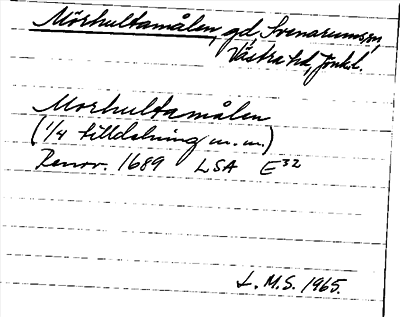 Mörhultamålen, gd, Svenarums sn,
Västra hd, Jönk.l.
Morhultamålen
(1/4 tilldelning m.m.)
Renov. 1689 LSA E32
L.M.S. 1965.